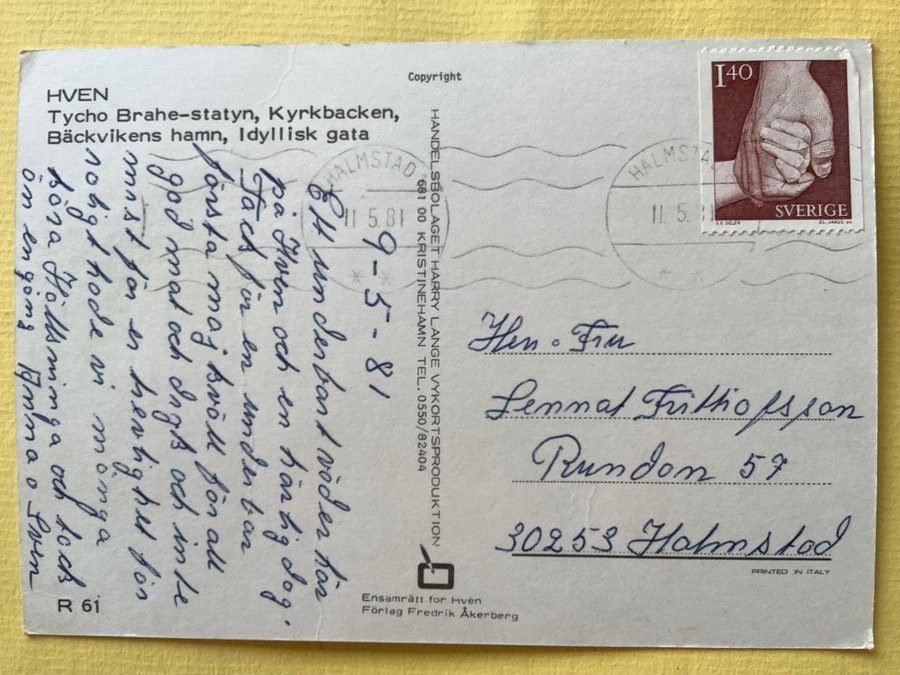 Copyright
HVEN
Tycho Brahe-statyn, Kyrkbacken,
Bäckvikens hamn, Idyllisk gata
9-5-81
Ett underbart väder här
på Hven och en härlig dag.
Tack för en underbar
första maj kväll för all
god mat och dryck och inte
minst för er hevlighet för
roligt hade vi många
Höllsninga och tack
än en gång o Sven
HANDELSBOLAGET HARRY LANGE VYKORTSPRODUKTION
681 00 KRISTINEHAMN TEL. 0550/82404
HALMSTAD
11.5.81
HALMSTA
11.5.81
1.40
SVERIGE
Herr o Fru
Lennat Frithiofsson
Rundon 57
30253 Halmstad
PRINTED IN ITALY
R 61
Ensamrätt for Hven
Förlag Fredrik Åkerberg